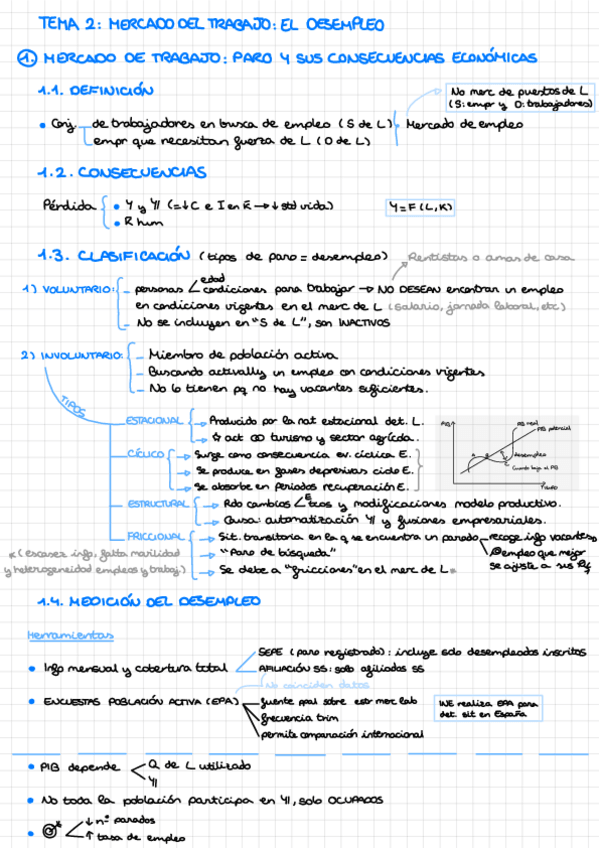 TEMA 2: MERCADO DEL TRABAJO: EL DESEMPLEO
1. MERCADO DE TRABAJO: PARO Y SUS CONSECUENCIAS ECONÓMICAS
1.1. DEFINICIÓN
No merc de puestos de L
(S: empr y D: trabajadores)
• Conj. de trabajadores en busca de empleo (S de L) Mercado de empleo
empr que necesitan fuerza de L (D de L)
1.2. CONSECUENCIAS
Pérdida • Y y (=↓C e I en K → ↓ std vida)
• R hum
Y = F (L, K)
1.3. CLASIFICACIÓN (tipos de paro = desempleo) Rentistas o amas de casa
1) VOLUNTARIO: - personas edad
condiciones para trabajar → NO DESEAN encontrar un empleo
en condiciones vigentes en el merc de L (salario, jornada laboral, etc)
- No se incluyen en "S de L", son INACTIVOS
2) INVOLUNTARIO: - Miembro de población activa
- Buscando activally un empleo con condiciones vigentes
- No lo tienen pq no hay vacantes suficientes.
TIPOS
ESTACIONAL → Producido por la nat estacional det. L.
→ ☆ act ∞ turismo y sector agrícola.
CÍCLICO → Surge como consecuencia ev. cíclica E.
→ Se produce en fases depresivas ciclo E.
→ Se absorbe en periodos recuperación E.
PIB
PIB real
PIB potencial
desempleo
Cuando baja el PIB
ESTRUCTURAL → Rdo cambios E
tcos y modificaciones modelo productivo.
→ Causa: automatización y fusiones empresariales.
FRICCIONAL → Sit. transitoria en la q se encuentra un parado recoge info vacantes
empleo que mejor
se ajuste a sus
→ "Paro de búsqueda"
→ Se debe a "fricciones" en el merc de L *
* (escasez info, falta movilidad
y heterogeneidad empleos y trabaj.)
1.4. MEDICIÓN DEL DESEMPLEO
Herramientas
• Info mensual y cobertura total SEPE (paro registrado): incluye solo desempleados inscritos
AFILIACIÓN SS: solo afiliados SS
No coinciden datos
• ENCUESTAS POBLACIÓN ACTIVA (EPA) fuente ppal sobre estr merc lab
frecuencia trim
permite comparación internacional
INE realiza EPA para
det. sit en España
• PIB depende Q de L utilizado
• No toda la población participa en , solo OCUPADOS
• ↓ nº parados
↑ tasa de empleo